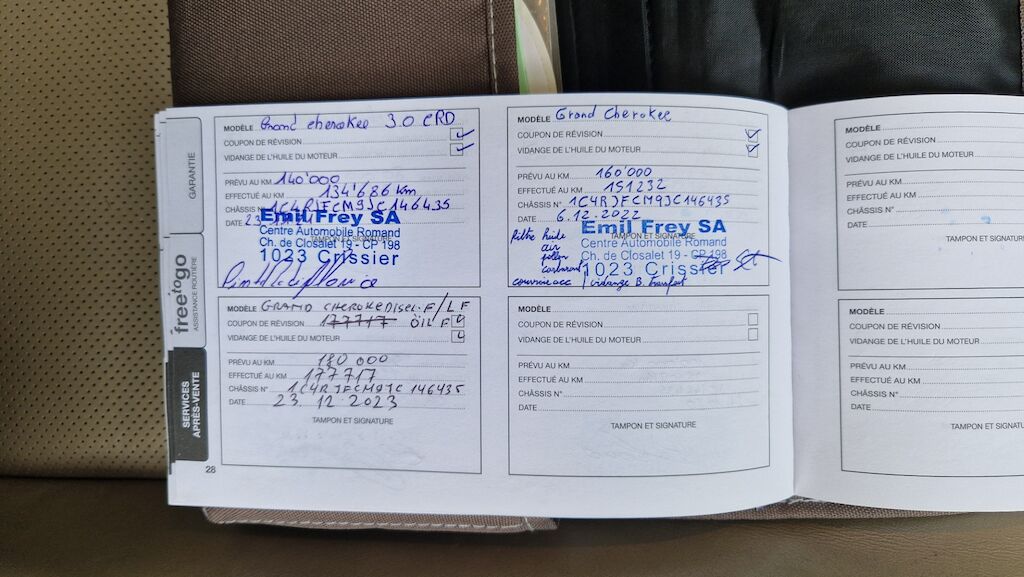 GARANTIE
freetogo
ASSISTANCE ROUTIÈRE
SERVICES
APRÈS-VENTE
MODÈLE Grand cherokee 3.0 CRD
COUPON DE RÉVISION
VIDANGE DE L'HUILE DU MOTEUR
PRÉVU AU KM 140'000
EFFECTUÉ AU KM 134'686 km
CHÂSSIS N° 1C4RJFCM9JC146435
DATE
TAMPON ET SIGNATURE
Emil Frey SA
Centre Automobile Romand
Ch. de Closalet 19 - CP 198
1023 Crissier
MODÈLE Grand Cherokee
COUPON DE RÉVISION
VIDANGE DE L'HUILE DU MOTEUR
PRÉVU AU KM 160'000
EFFECTUÉ AU KM 151232
CHÂSSIS N° 1C4RJFCM9JC146435
DATE 6.12.2022
TAMPON ET SIGNATURE
Emil Frey SA
Centre Automobile Romand
Ch. de Closalet 19 - CP 198
1023 Crissier
filtre huile
air
pollen
carburant
courroie acc / vidange B. transfert
MODÈLE GRAND CHEROKE DISEL. F/L F
COUPON DE RÉVISION 177717 ÖIL F
VIDANGE DE L'HUILE DU MOTEUR
PRÉVU AU KM 180 000
EFFECTUÉ AU KM 177717
CHÂSSIS N° 1C4RJFCM9JC146435
DATE 23.12.2023
TAMPON ET SIGNATURE
28
MODÈLE
COUPON DE RÉVISION
VIDANGE DE L'HUILE DU MOTEUR
PRÉVU AU KM
EFFECTUÉ AU KM
CHÂSSIS N°
DATE
TAMPON ET SIGNATURE
MODÈLE
COUPON DE RÉVISION
VIDANGE DE L'HUILE DU MOTEUR
PRÉVU AU KM
EFFECTUÉ AU KM
CHÂSSIS N°
DATE
MODÈLE
COUPON DE RÉVISION
VIDANGE DE L'HUILE DU MOTEUR
PRÉVU AU KM
EFFECTUÉ AU KM
CHÂSSIS N°
DATE